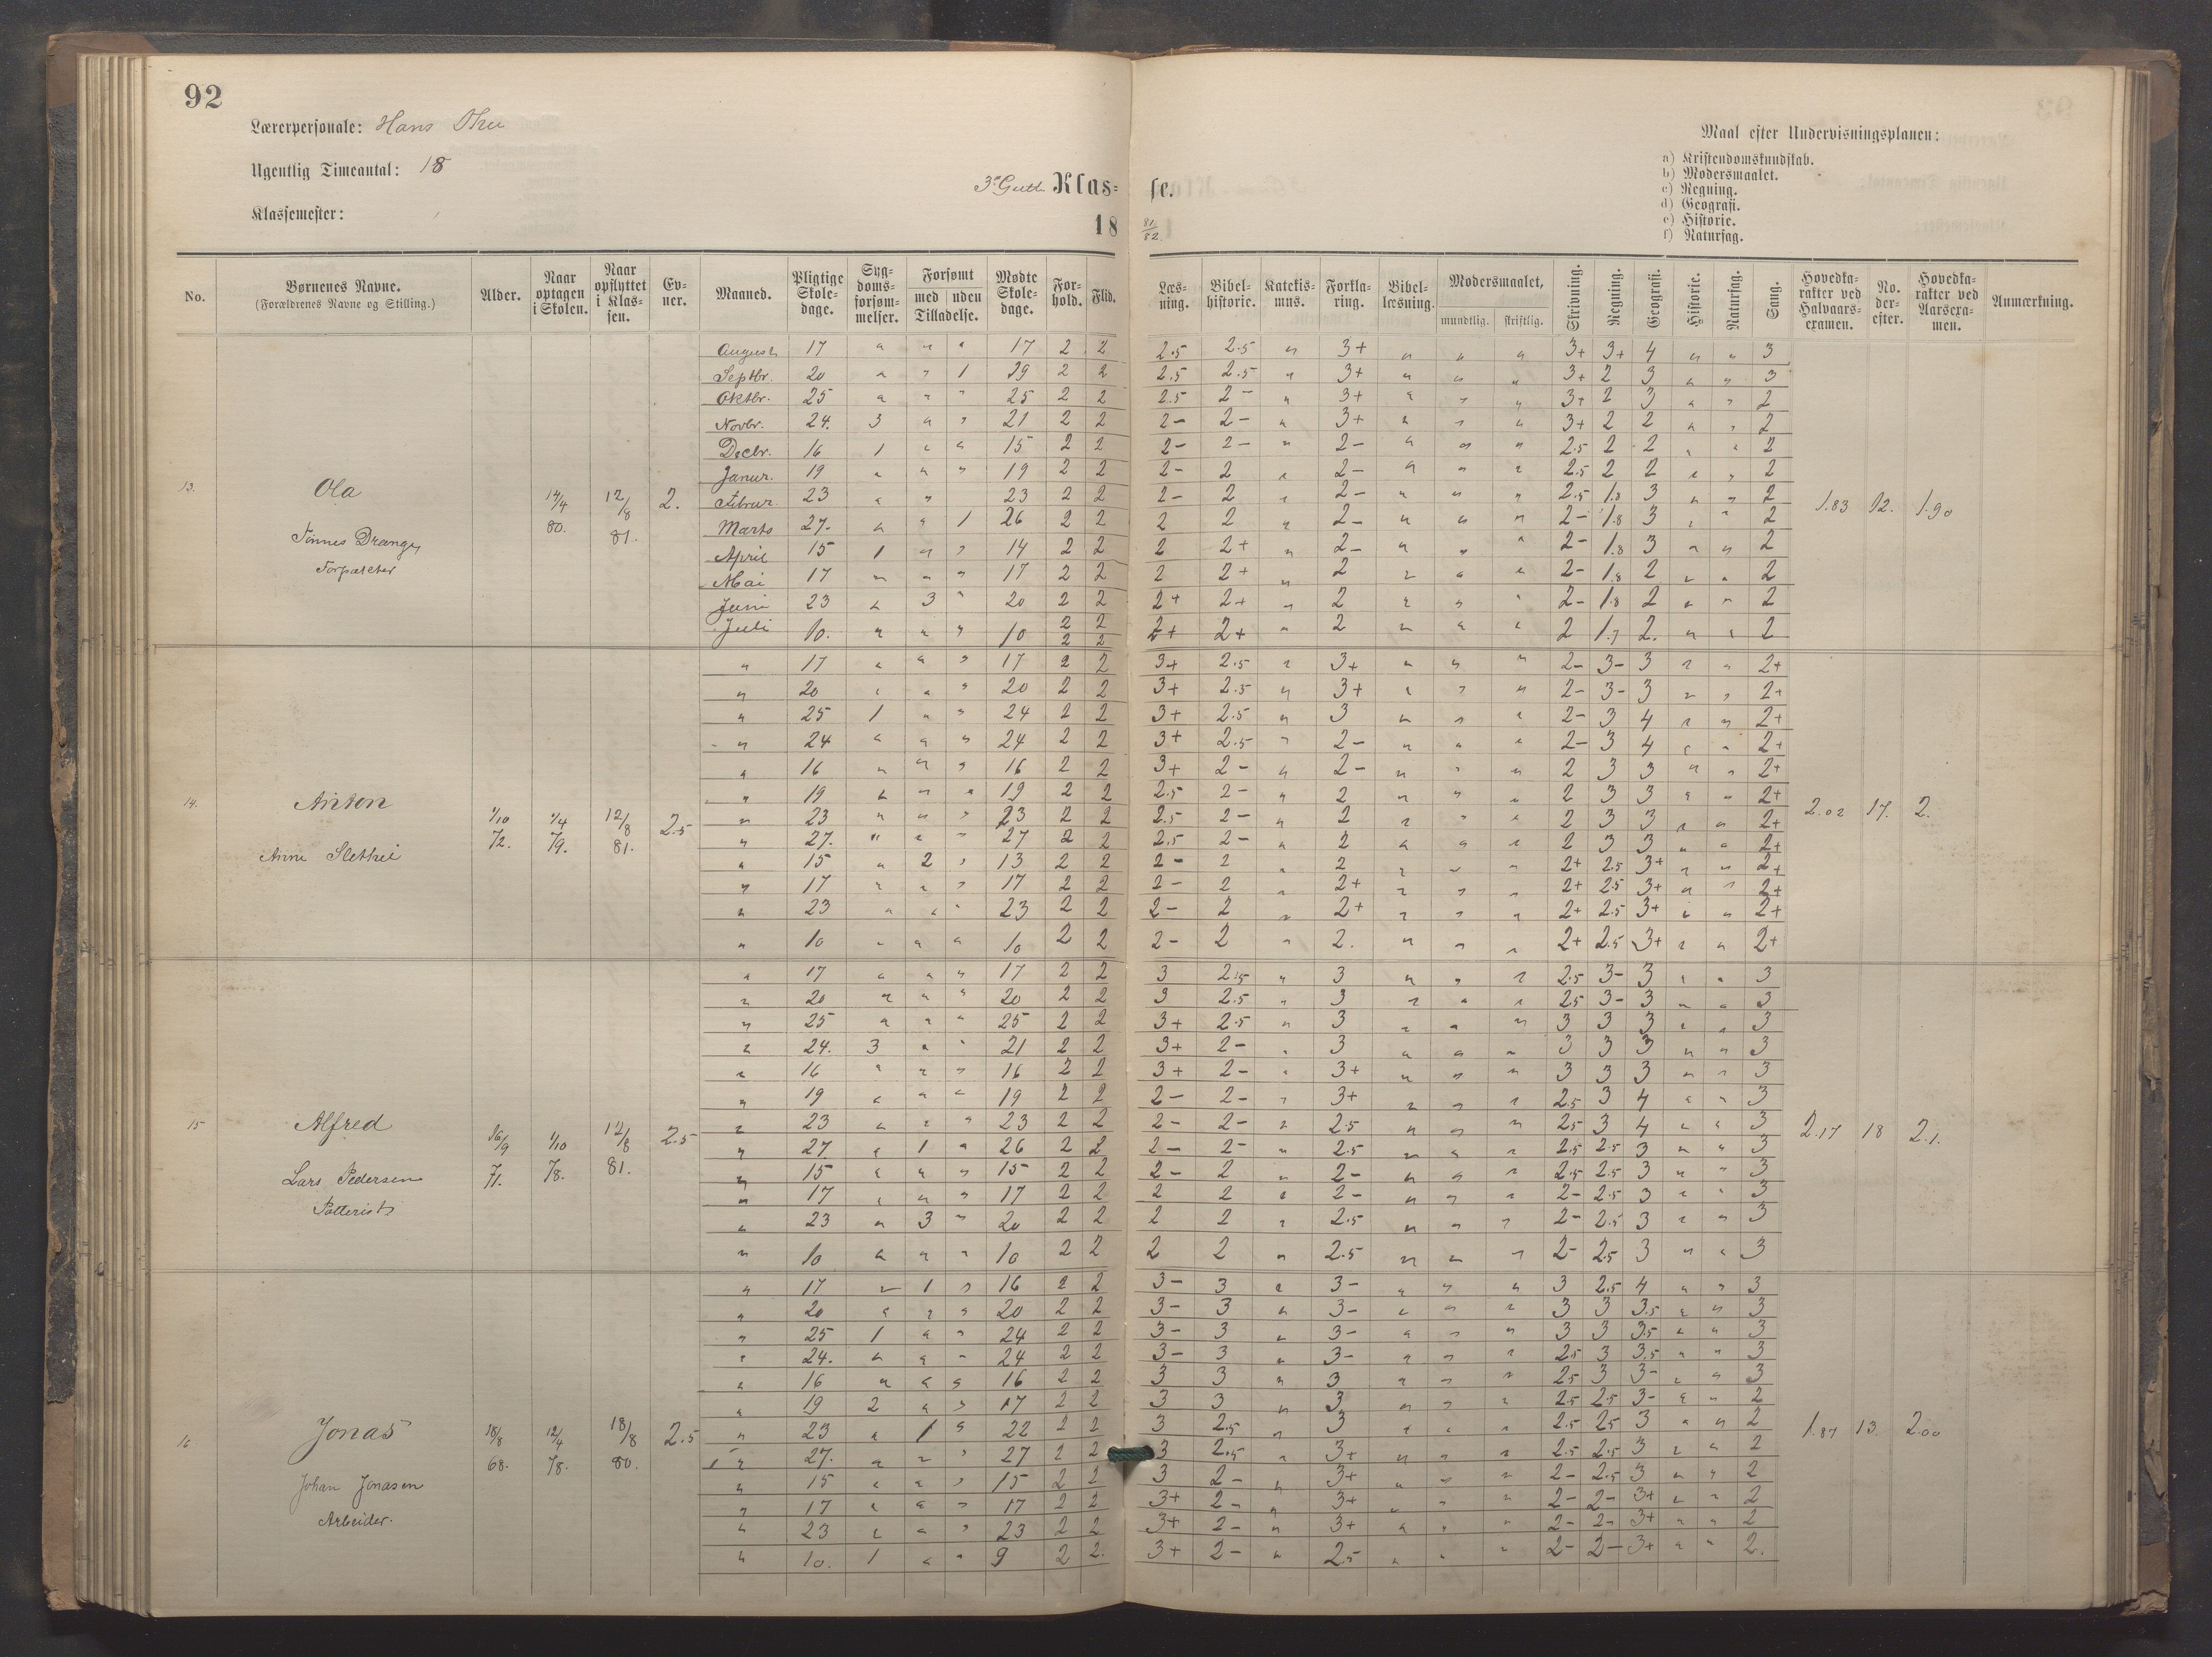 92
Lærerpersonale: Hans
Ugentlig Timeantal: 18
3e Klas=
se.
Klassemester:
18 81/82
Maal efter Undervisningsplanen:
a) Kristendomskundskab.
b) Modersmaalet.
c) Regning.
d) Geografi.
e) Historie.
f) Naturfag.
No. Børnenes Navne. (Forældrenes Navne og Stilling.) Alder. Naar optagen i Skolen. Naar opflyttet i Klas-sen. Ev-ner. Maaned. Pligtige Skole-dage. Syg-doms-forsøm-melser. Forsømt med uden Tilladelse. Mødte Skole-dage. For-hold. Flid. Læs-ning. Bibel-historie. Katekis-mus. Forkla-ring. Bibel-læsning. Modersmaalet, mundtlig. skriftlig. Skrivning. Regning. Geografi. Historie. Naturfag. Sang. Hovedka-rakter ved Halvaars-examen. No. der-efter. Hovedka-rakter ved Aarsexa-men. Anmærkning.
August 17 " " " 17 2 2 2.5 2.5 " 3+ " " " 3+ 3+ 4 " " 3
Septbr. 20 " " 1 19 2 2 2.5 2.5 " 3+ " " " 3+ 2 3 " " 3
Oktbr. 25 " " " 25 2 2 2.5 2- " 3+ " " " 3+ 2 3 " " 2
Novbr. 24. 3 " " 21 2 2 2- 2- " 3+ " " " 3+ 2 2 " " 2
Decbr. 16 1 " " 15 2 2 2- 2- " 2- " " " 2.5 2 2 " " 2
Janur. 19 " " " 19 2 2 2- 2 " 2- " " " 2.5 2 2 " " 2
13. Ola 14/4 80. 12/8 81. 2. Februr. 23 " " 23 2 2 2- 2 " 2- " " " 2.5 1.8 3 " " 2 1.83 12. 1.90
Marts 27. " " 1 26 2 2 2 2 " 2- " " " 2- 1.8 3 " " 2
Tønnes Drange
April 15 1 " " 14 2 2 2 2+ " 2- " " " 2- 1.8 3 " " 2
Forpakter
Mai 17 " " " 17 2 2 2 2+ " 2 " " " 2- 1.8 2 " " 2
Juni 23 " 3 " 20 2 2 2+ 2+ " 2 " " " 2- 1.8 2 " " 2
Juli 10. " " " 10 2 2 2+ 2+ " 2 " " " 2 1.7 2. " " 2
2 2
" 17 " " " 17 2 2 3+ 2.5 " 3+ " " " 2- 3- 3 " " 2+
" 20 " " " 20 2 2 3+ 2.5 " 3+ " " " 2- 3- 3 " " 2+
" 25 1 " " 24 2 2 3+ 2.5 " 3 " " " 2- 3 4 " " 2+
" 24 " " " 24 2 2 3+ 2.5 " 2- " " " 2- 3 4 " " 2+
" 16 " " " 16 2 2 3+ 2- " 2- " " " 2 3 3 " " 2+
" 19 " " " 19 2 2 2.5 2- " 2 " " " 2 3 3 " " 2+
14. Anton 1/10 72. 1/4 79. 12/8 81. 2.5 " 23 " " " 23 2 2 2.5 2- " 2 " " " 2 3 3 " " 2+ 2.02 17. 2.
" 27. " " " 27 2 2 2.5 2- " 2 " " " 2 3 3 " " 2+
Anne Slethei
" 15 " 2 " 13 2 2 2- 2 " 2 " " " 2+ 2.5 3+ " " 2+
" 17 " " " 17 2 2 2- 2 " 2+ " " " 2+ 2.5 3+ " " 2+
" 23 " " " 23 2 2 2- 2 " 2+ " " " 2+ 2.5 3+ " " 2+
" 10 " " " 10 2 2 2- 2 " 2. " " " 2+ 2.5 3+ " " 2+
" 17 " " " 17 2 2 3 2.5 " 3 " " " 2.5 3- 3 " " 3
" 20 " " " 20 2 2 3 2.5 " 3 " " " 2.5 3- 3 " " 3
" 25 " " " 25 2 2 3+ 2.5 " 3 " " " 3 3 3 " " 3
" 24. 3 " " 21 2 2 3+ 2- " 3 " " " 3 3 3 " " 3
" 16 " " " 16 2 2 3+ 2- " 3+ " " " 3 3 3 " " 3
" 19 " " " 19 2 2 2- 2- " 3+ " " " 2.5 3 4 " " 3
15 Alfred 16/9 71. 1/10 78. 12/8 81. 2.5 " 23 " " " 23 2 2 2- 2- " 2.5 " " " 2.5 3 4 " " 3 2.17 18 2.1.
" 27. " 1 " 26 2 2 2- 2- " 2.5 " " " 2.5 2.5 3 " " 3
Lars Pedersen
" 15 " " " 15 2 2 2- 2 " 2- " " " 2.5 2.5 3 " " 3
Potterist
" 17 " " " 17 2 2 2 2 " 2- " " " 2- 2.5 3 " " 3
" 23 " 3 " 20 2 2 2 2 " 2.5 " " " 2- 2.5 3 " " 3
" 10 " " " 10 2 2 2 2 " 2.5 " " " 2- 2.5 3 " " 3
" 17 " 1 " 16 2 2 3- 3 " 3- " " " 3 2.5 4 " " 3
" 20 " " " 20 2 2 3- 3 " 3- " " " 3 3 3.5 " " 3
" 25 1 " " 24 2 2 3- 3 " 3- " " " 3 3 3.5 " " 3
" 24. " " " 24 2 2 3- 3 " 3- " " " 2.5 3 3.5 " " 3
" 16 " " " 16 2 2 3 3 " 3 " " " 2.5 3 3- " " 3
" 19 2 " " 17 2 2 3 3 " 3 " " " 2.5 2.5 3- " " 2
16. Jonas 18/8 68. 12/4 78. 18/8 80. 2.5 " 23 " 1 " 22 2 2 3 2.5 " 3 " " " 2.5 2.5 3 " " 2 1.87 13. 2.00
" 27. " " " 27 2 2 3 2.5 " 3+ " " " 2.5 2.5 3 " " 2
Johan Jonasen
" 15 " " " 15 2 2 3 2- " 3+ " " " 2- 2.5 3 " " 2
Arbeider.
" 17 " " " 17 2 2 3+ 2- " 3+ " " " 2- 2- 3+ " " 2
" 23 " " " 23 2 2 3+ 2- " 3+ " " " 2- 2- 3+ " " 2
" 10. 1 " " 9 2 2. 3+ 2- " 2.5 " " " 2- 2- 3+ " " 2.